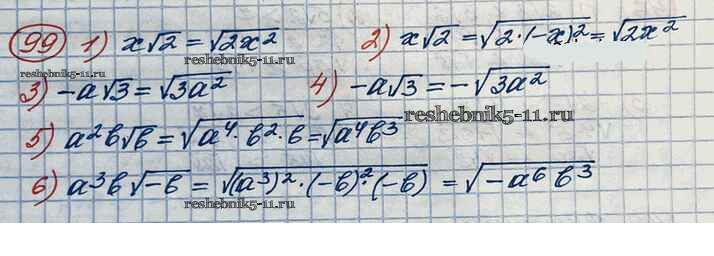 99 1) x√2 = √2x² 2) x√2 = √2·(-x)² = √2x²
reshebnik5-11.ru
3) -a√3 = √3a² 4) -a√3 = -√3a²
reshebnik5-11.ru
5) a²b√b = √a⁴·b²·b = √a⁴b³
6) a³b√-b = √(a³)²·(-b)²·(-b) = √-a⁶b³
reshebnik5-11.ru